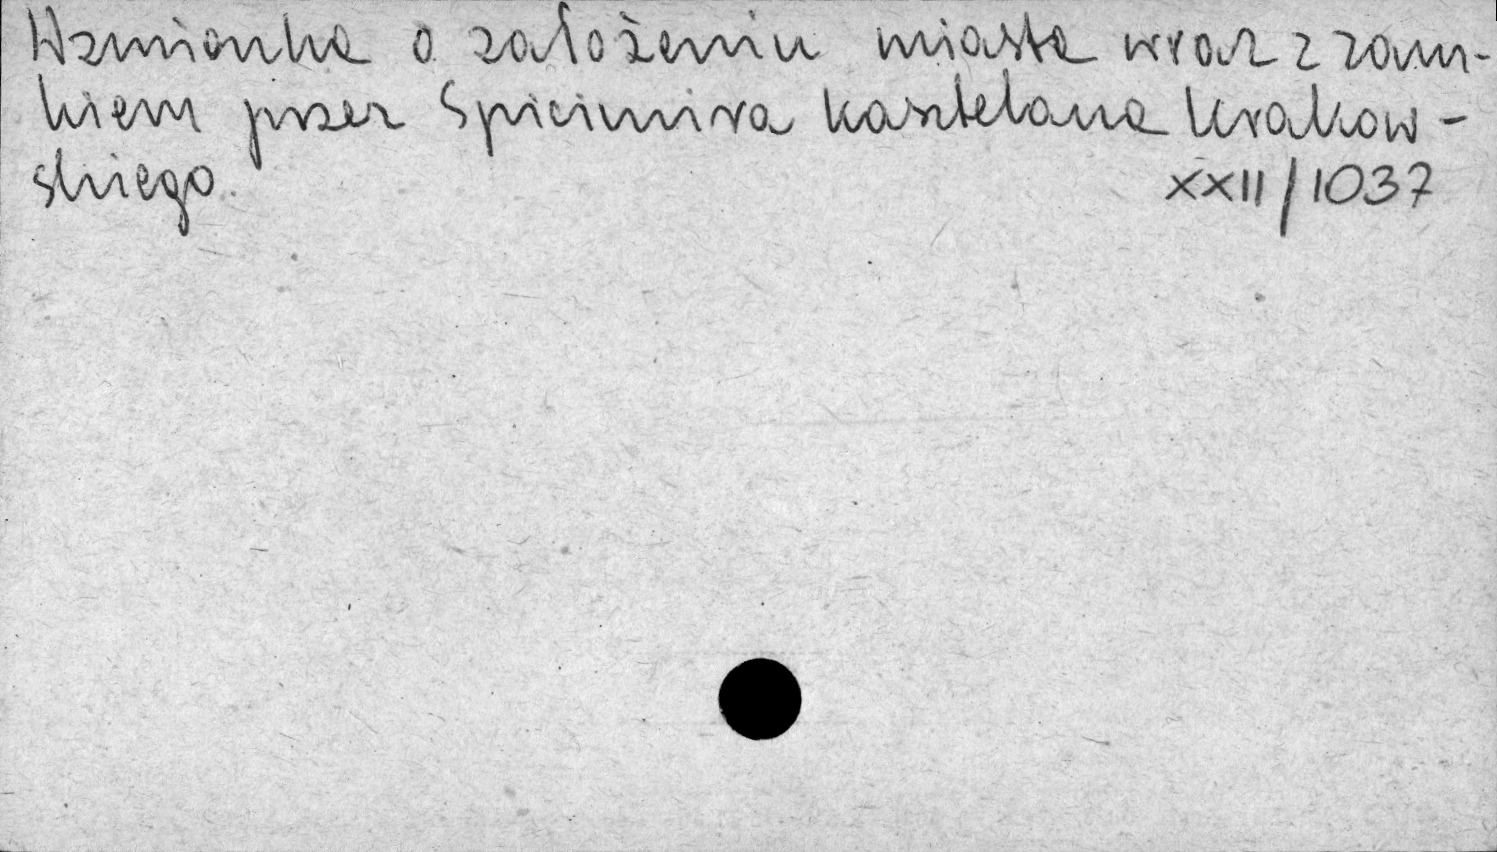 Wzmianka o założeniu miasta wraz z zam-
kiem przez Spicimira kasztelana krakow-
skiego. XXII/1037